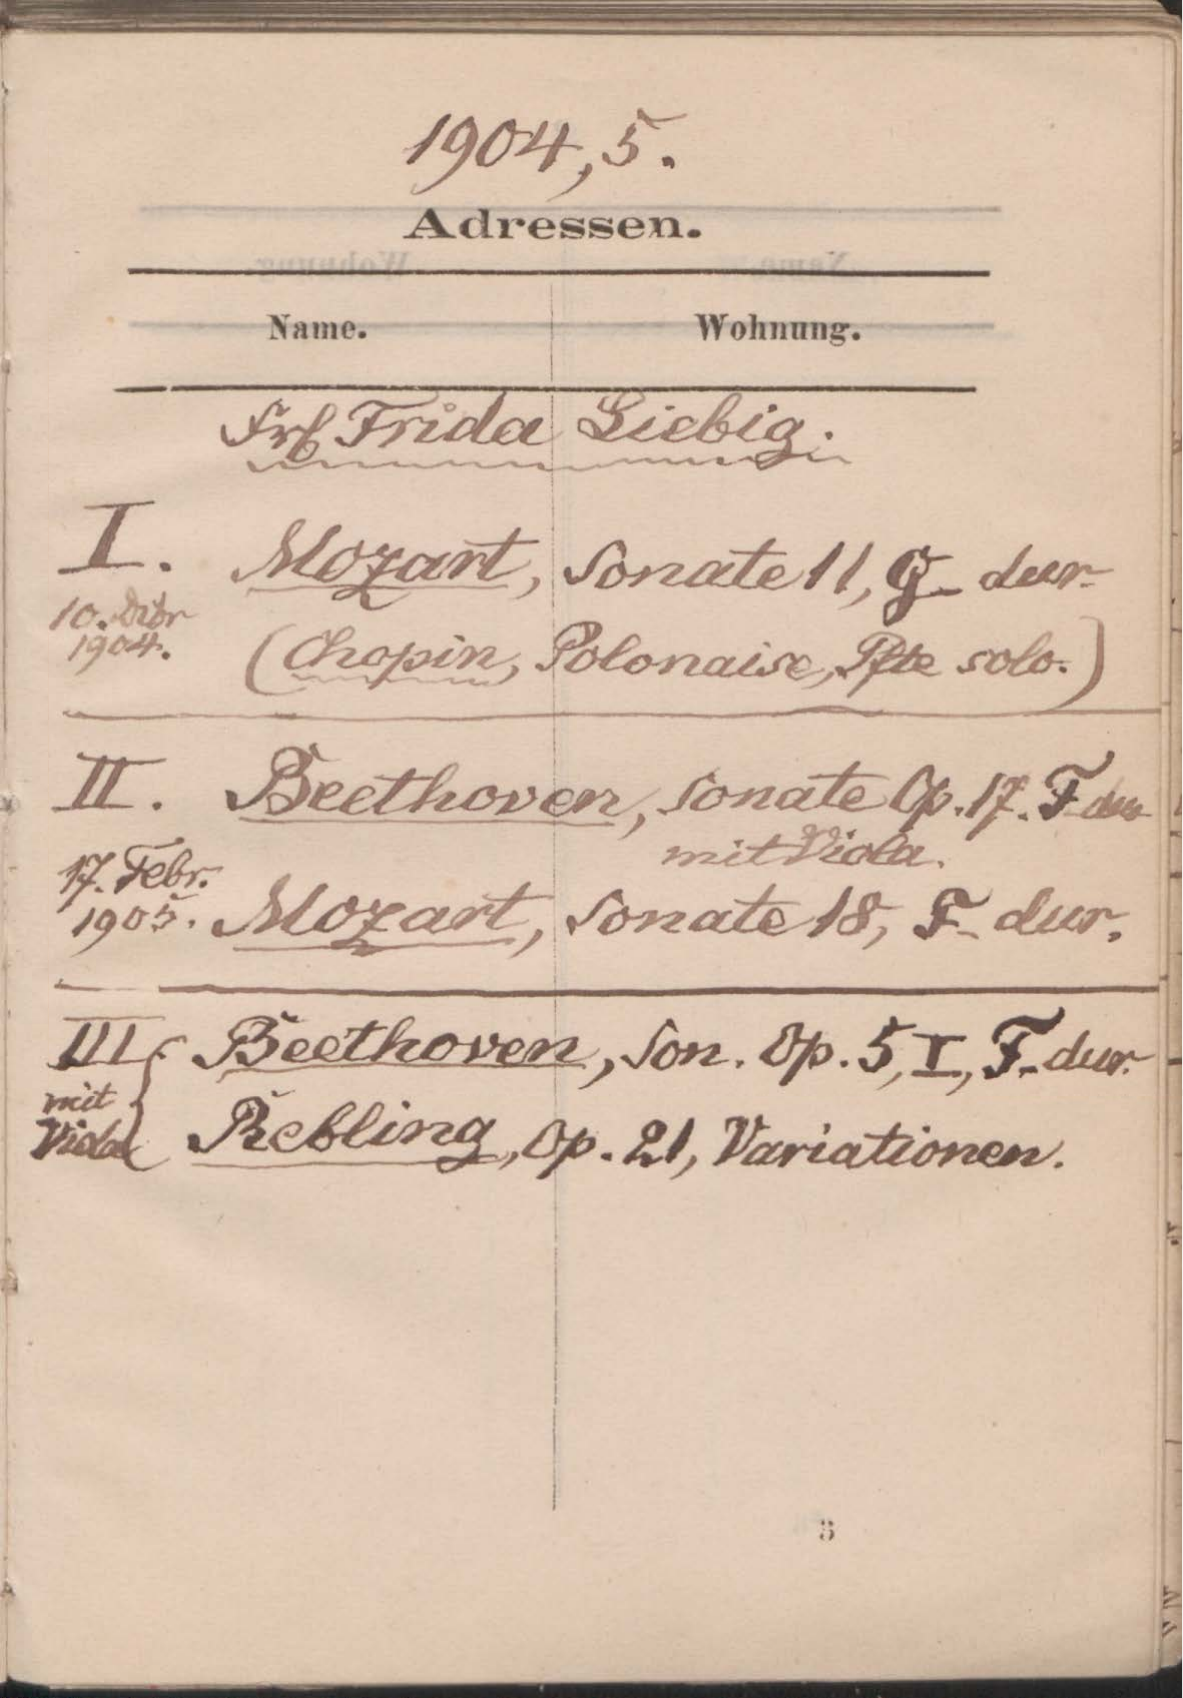 1904, 5.
Adressen.
Name. Wohnung.
Frl Frida Liebig.
I. Mozart, Sonate 11, G-dur.
10. Dzbr
1904.
(Chopin, Polonaise, Pfte solo.)
II. Beethoven, Sonate Op. 17. F-dur
mit Viola.
17. Febr.
1905. Mozart, Sonate 18, F-dur.
III Beethoven, Son. Op. 5, I, F-dur.
mit
Viola Rebling, Op. 21, Variationen.
3